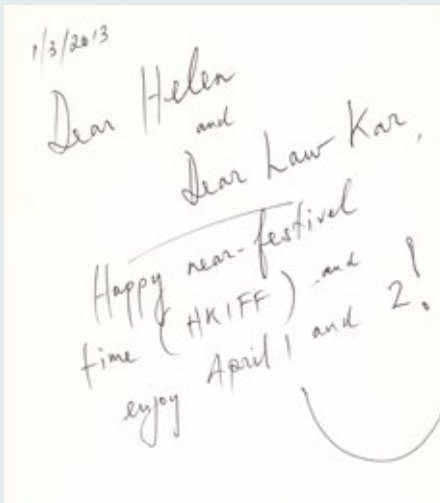 1/3/2013
Dear Helen
and
Dear Law Kar,
Happy near-festival
time (HKIFF) and
enjoy April 1 and 2!